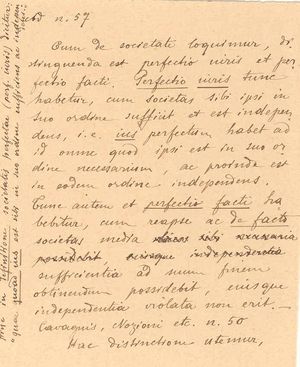 ad n. 57
Cum de societate loquimur, di
stinguenda est perfectio iuris et per
fectio facti. Perfectio iuris tunc
habetur, cum societas sibi ipsi in
suo ordine sufficit et est indepen
dens, i.e. ius perfectum habet ad
id omne quod ipsi est in suo or
dine necessarium, ac proinde est
in eodem ordine independens.
Tunc autem et perfectio facti ha
bebitur, cum reapse ac de facto
societas media necessaria
possidebit independentia
sufficientia ad suum finem
obtinendum possidebit, eiusque
independentia violata non erit. —
Cavagnis, Nozioni etc. n. 50
Hac distinctione utemur,
Hinc in definitione societatis perfectae (perf. iuris) dicitur:
"quae quoad ius est sibi in suo ordine sufficiens ac indepen